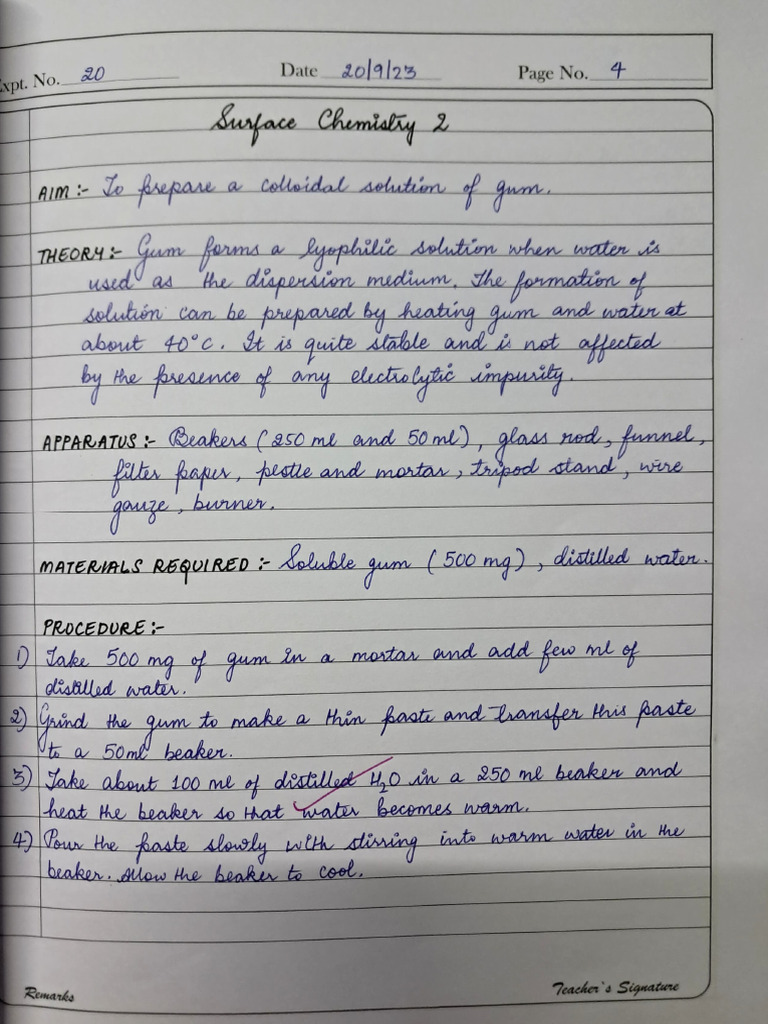 Expt. No. 20 Date 20/9/23 Page No. 4
Surface Chemistry 2
AIM :- To prepare a colloidal solution of gum.
THEORY:- Gum forms a lyophilic solution when water is
used as the dispersion medium. The formation of
solution can be prepared by heating gum and water at
about 40°C. It is quite stable and is not affected
by the presence of any electrolytic impurity.
APPARATUS :- Beakers (250 ml and 50 ml), glass rod, funnel,
filter paper, pestle and mortar, tripod stand, wire
gauze, burner.
MATERIALS REQUIRED :- Soluble gum (500 mg), distilled water.
PROCEDURE :-
1) Take 500 mg of gum in a mortar and add few ml of
distilled water.
2) Grind the gum to make a thin paste and transfer this paste
to a 50ml beaker.
3) Take about 100 ml of distilled H₂O in a 250 ml beaker and
heat the beaker so that water becomes warm.
4) Pour the paste slowly with stirring into warm water in the
beaker. Allow the beaker to cool.
Remarks Teacher's Signature